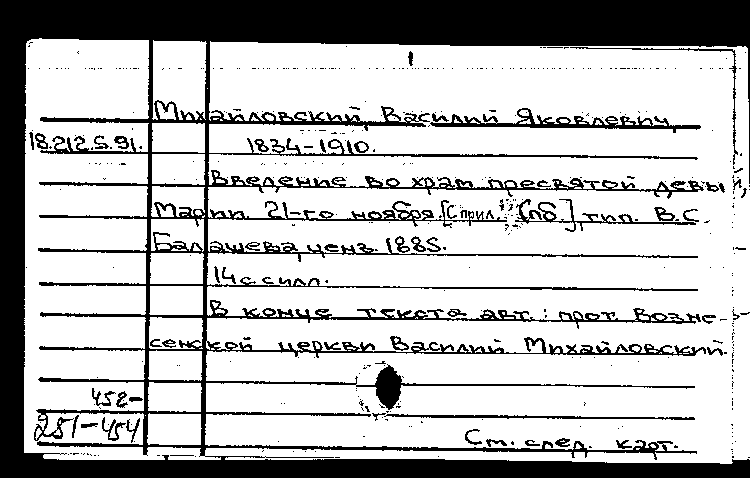 Михайловский, Василий Яковлевич,
18.212.5.91. 1834-1910.
Введение во храм пресвятой девы
Марии 21-го ноября. [С прил. Спб.], тип. В.С.
Балашева, ценз. 1885.
14 с. с илл.
В конце текста авт.: прот. Возне-
сенской церкви Василий Михайловский.
452-
251-454
См. след. карт.